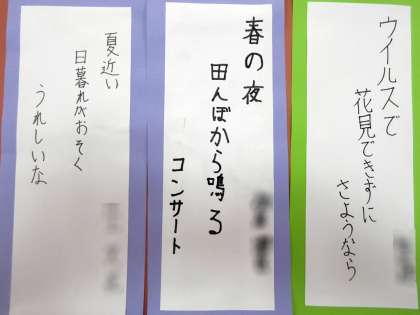 ウイルスで
花見できずに
さようなら
春の夜
田んぼから鳴る
コンサート
夏近い
日暮れがおそく
うれしいな